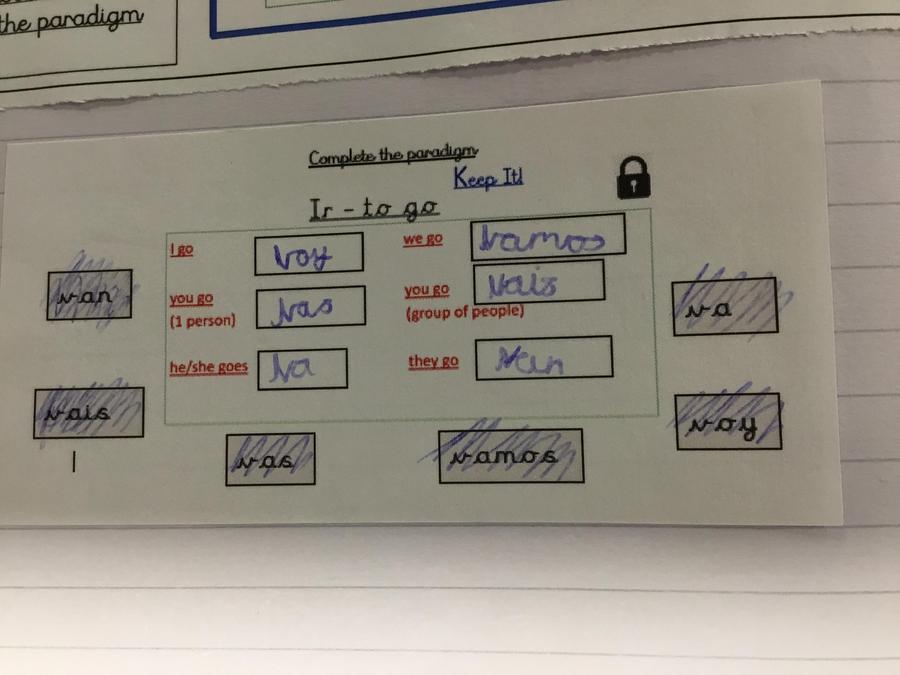 the paradigm
Complete the paradigm
Keep It!
Ir - to go
I go voy we go vamos
you go vas you go vais
(1 person) (group of people)
he/she goes va they go van
van va
vais voy
vas vamos